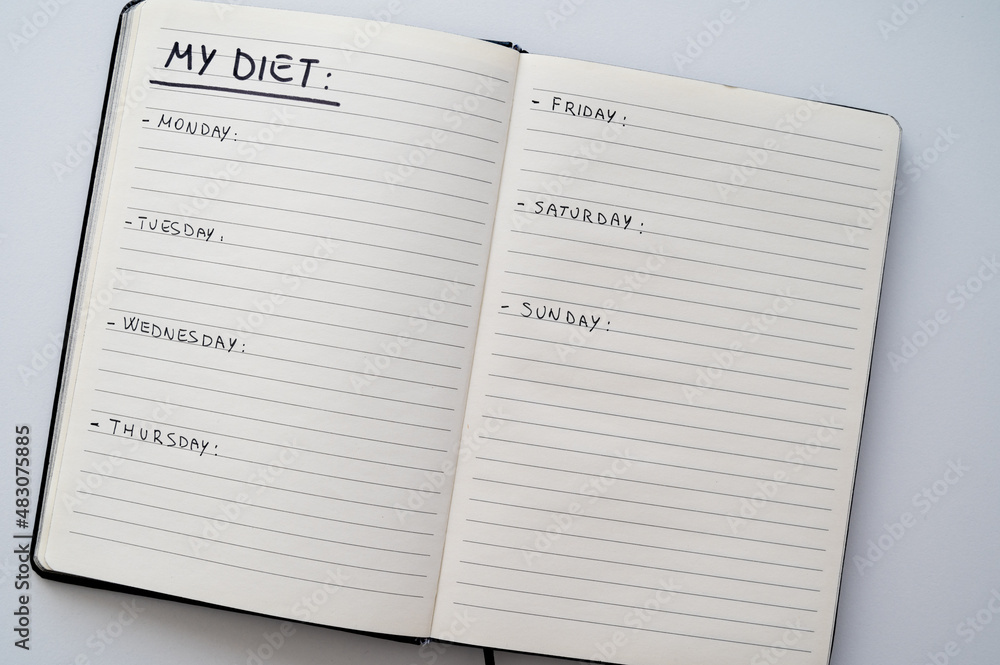 MY DIET:
- MONDAY:
- TUESDAY.
- WEDNESDAY:
- THURSDAY:
- FRIDAY:
- SATURDAY:
- SUNDAY:
Adobe Stock | #483075885